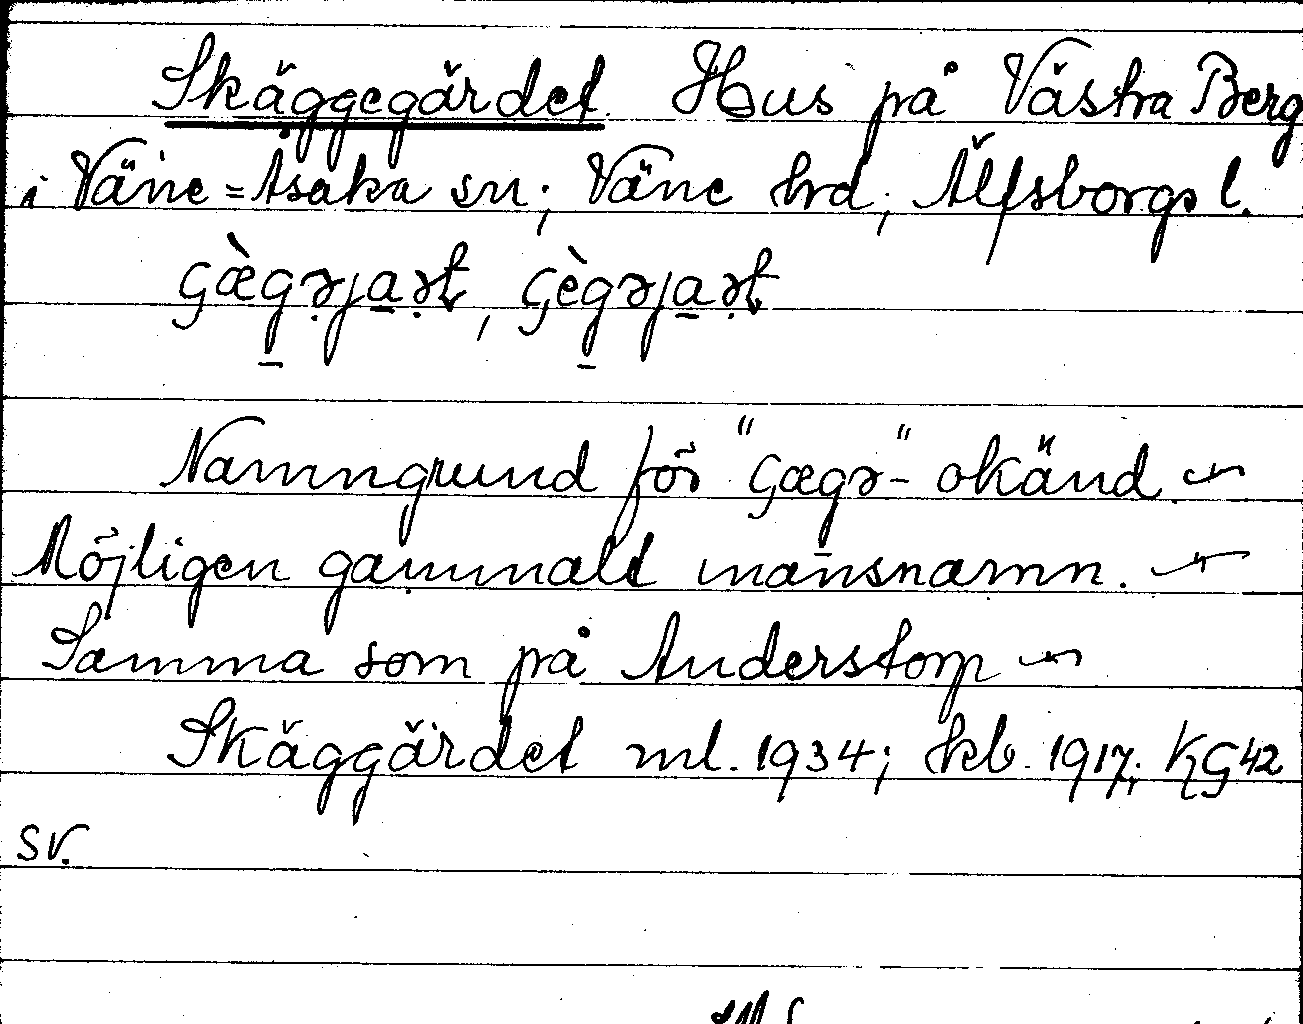 Skäggegärdet Hus på Västra Berg
i Väne=Åsaka sn; Väne hrd; Älfsborgs l.
Namngrund för "Gægə"- okänd
Möjligen gammalt mansnamn.
Samma som på Anderstorp
Skäggärdet ml. 1934; hkb. 1917; KG42
SV.